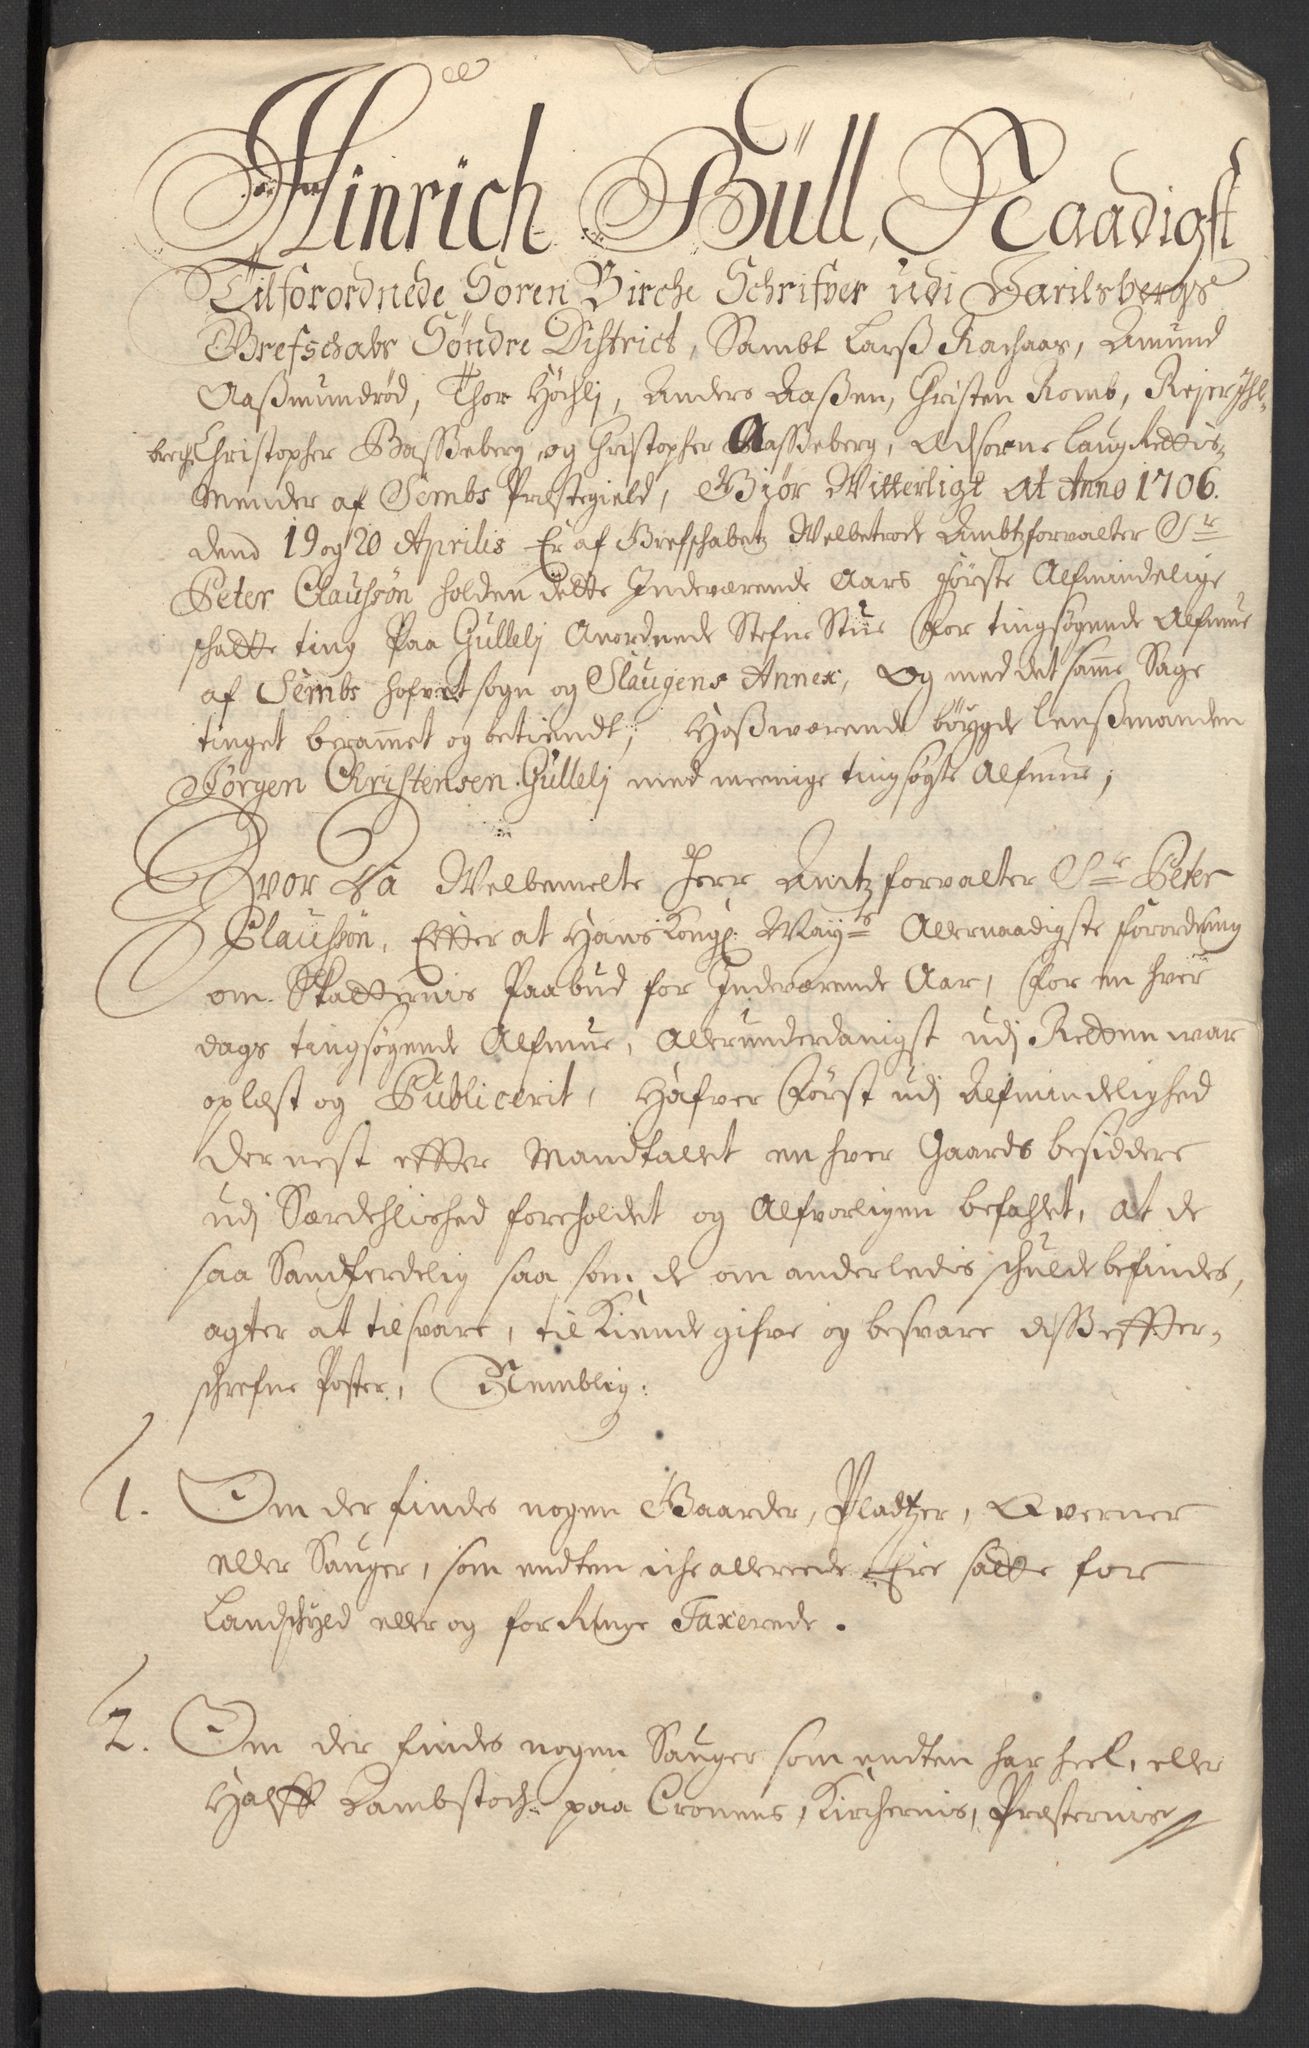 Hinrich Büll, Naadigst
Tilforordnede Soren Birche Schrifver udi Jarilsbergs
Grefschabs Söndre District, Sambt Larß Rachaas, Amund
Aaßmundrød, Thor Høchlj, Anders Aaßen, Christen Romb, Rejer Ihl-
brech, Christopher Basseberg, og Christopher Aasseberg, Edsorne laug Rettis-
Mender af Sembs Præstegield, Giør Witterligt at Anno 1706.
dend 19 og 20 Aprilis Er af Grefschabetz Welbetrode Ambtzforvalter Sr
Peter Claussøn holden dette Indeværende Aars første Almindelige
schatte ting Paa Gullelj Anordnede Stefne Stue for tingsøgende Almue
af Sembs hofvet sogn og Slaugens Annex, Og med det samme Sage
tinget berammet og betiendt; Hoßwærende bøygde Lenßmanden
Jørgen Christensen Gullelj med meenige tingsøgte Almue;
Hvor Da Welbemelte Herr Amtzforvalter Sr Peter
Claussøn, Efter at Hans Kongl: Mayts Allernaadigste forordning
om Skatternis Paabud for Indeværende Aar, for en hver
dags tingsøgende Almue, Allerunderdanigst udj Retten war
oplæst og Publicerit, Hafver først udj Almindelighed
der nest efter Mandtallet en hver Gaards besiddere
udj Særdehlished foreholdet og Alfvorligen befahlet, at de
saa Sandferdelig saa som de om anderledis schulde befindes,
agter at tilsvare, til Kiende gifve og besvare dissefter-
schrefne Poster, Nemblig:
1. Om der findes nogen Gaarder, Pladtzer, Qverner
eller Sauger, som endten iche allereede Ere satte for
Landschyld eller og for Ringe Taxerede.
2. Om der findes nogen Sauger som endten har heel, eller
Halff Kambstoch paa Cronens, Kirchernis, Præsternis